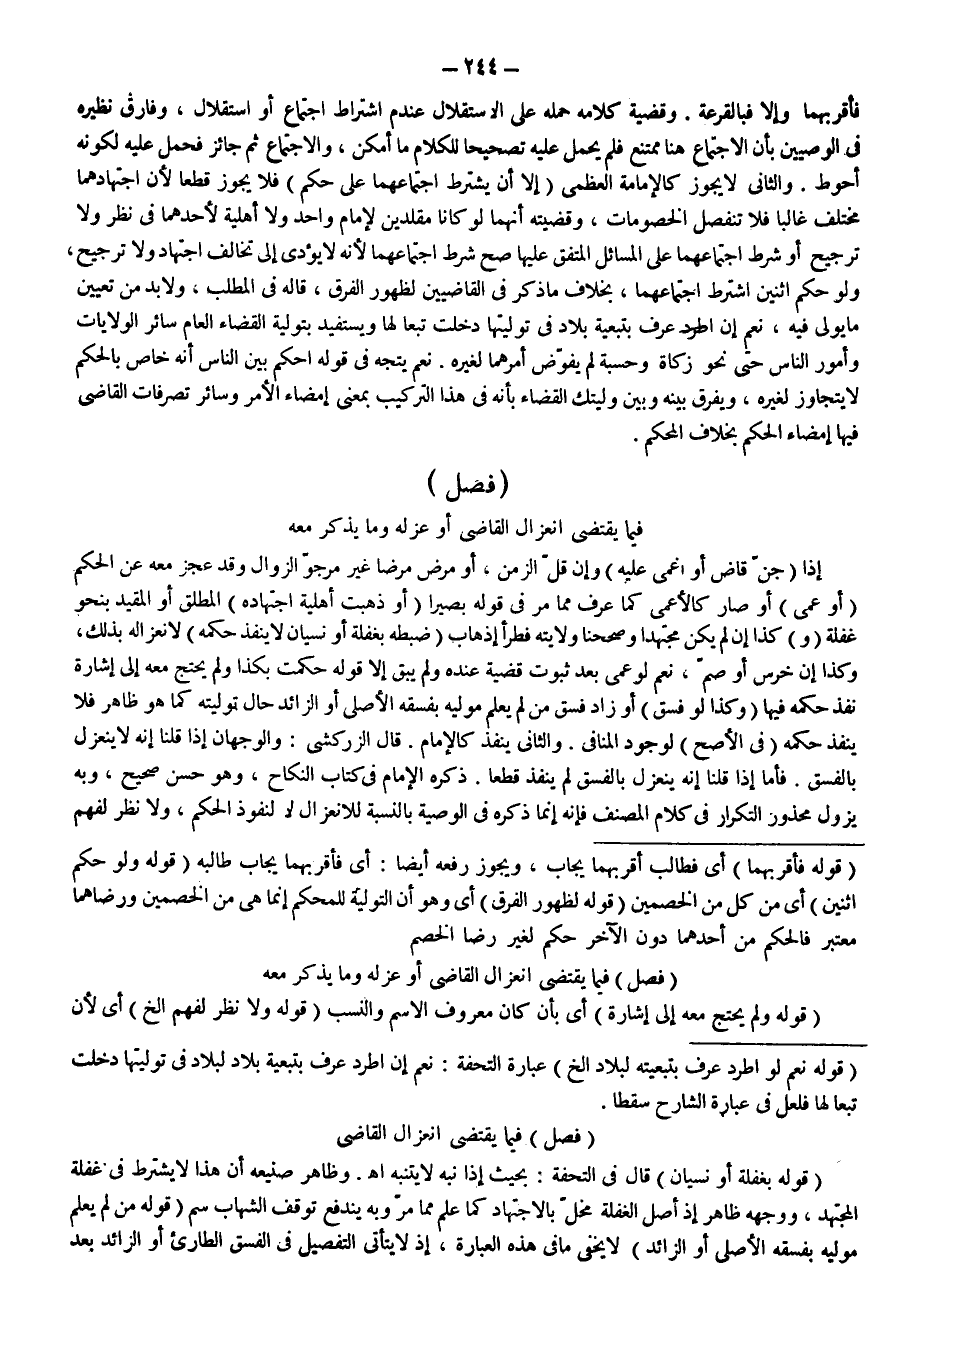 – ٢٤٤ –
فأقربهما وإلا فبالقرعة . وقضية كلامه حمله على الاستقلال عندم اشتراط اجتماع أو استقلال ، وفارق نظيره
فى الوصيين بأن الاجتماع هنا ممتنع فلم يحمل عليه تصحيحا للكلام ما أمكن ، والاجتماع ثم جائز فحمل عليه لكونه
أحوط . والثانى لايجوز كالإمامة العظمى ( إلا أن يشترط اجتماعهما على حكم ) فلا يجوز قطعا لأن اجتهادهما
مختلف غالبا فلا تنفصل الخصومات ، وقضيته أنهما لو كانا مقلدين لإمام واحد ولا أهلية لأحدهما فى نظر ولا
ترجيح أو شرط اجتماعهما على المسائل المتفق عليها صح شرط اجتماعهما لأنه لايؤدى إلى تخالف اجتهاد ولا ترجيح ،
ولو حكم اثنين اشترط اجتماعهما ، بخلاف ماذكر فى القاضيين لظهور الفرق ، قاله فى المطلب ، ولابد من تعيين
مايولى فيه ، نعم إن اطرد عرف بتبعية بلاد فى توليتها دخلت تبعا لها ويستفيد بتولية القضاء العام سائر الولايات
وأمور الناس حتى نحو زكاة وحسبة لم يفوّض أمرهما لغيره . نعم يتجه فى قوله احكم بين الناس أنه خاص بالحكم
لايتجاوز لغيره ، ويفرق بينه وبين وليتك القضاء بأنه فى هذا التركيب بمعنى إمضاء الأمر وسائر تصرفات القاضى
فيها إمضاء الحكم بخلاف المحكم .
( فصل )
فيما يقتضى انعزال القاضى أو عزله وما يذكر معه
إذا ( جنّ قاض أو اغمى عليه ) وإن قلّ الزمن ، أو مرض مرضا غير مرجوّ الزوال وقد عجز معه عن الحكم
( أو عمى ) أو صار كالأعمى كما عرف مما مر فى قوله بصيرا ( أو ذهبت أهلية اجتهاده ) المطلق أو المقيد بنحو
غفلة ( و ) كذا إن لم يكن مجتهدا وصححنا ولايته فطرأ إذهاب ( ضبطه بغفلة أو نسيان لاينفذ حكمه ) لانعزاله بذلك ،
وكذا إن خرس أو صمّ ، نعم لو عمى بعد ثبوت قضية عنده ولم يبق إلا قوله حكمت بكذا ولم يحتج معه إلى إشارة
نفذ حكمه فيها ( وكذا لو فسق ) أو زاد فسق من لم يعلم موليه بفسقه الأصلى أو الزائد حال توليته كما هو ظاهر فلا
ينفذ حكمه ( فى الأصح ) لوجود المنافى . والثانى ينفذ كالإمام . قال الزركشى : والوجهان إذا قلنا إنه لاينعزل
بالفسق . فأما إذا قلنا إنه ينعزل بالفسق لم ينفذ قطعا . ذكره الإمام فى كتاب النكاح ، وهو حسن صحيح ، وبه
يزول محذور التكرار فى كلام المصنف فإنه إنما ذكره فى الوصية بالنسبة للانعزال لا لنفوذ الحكم ، ولا نظر لفهم
( قوله فأقربهما ) أى فطالب أقربهما يجاب ، ويجوز رفعه أيضا : أى فأقربهما يجاب طالبه ( قوله ولو حكم
اثنين ) أى من كل من الخصمين ( قوله لظهور الفرق ) أى وهو أن التولية للمحكم إنما هى من الخصمين ورضاهما
معتبر فالحكم من أحدهما دون الآخر حكم لغير رضا الخصم
( فصل ) فيما يقتضى انعزال القاضى أو عزله وما يذكر معه
( قوله ولم يحتج معه إلى إشارة ) أى بأن كان معروف الاسم والنسب ( قوله ولا نظر لفهم الخ ) أى لأن
( قوله نعم لو اطرد عرف بتبعيته لبلاد الخ ) عبارة التحفة : نعم إن اطرد عرف بتبعية بلاد لبلاد فى توليتها دخلت
تبعا لها فلعل فى عبارة الشارح سقطا .
( فصل ) فيما يقتضى انعزال القاضى
( قوله بغفلة أو نسيان ) قال فى التحفة : بحيث إذا نبه لايتنبه اه . وظاهر صنيعه أن هذا لايشترط فى غفلة
المجتهد ، ووجهه ظاهر إذ أصل الغفلة مخلّ بالاجتهاد كما علم مما مرّ وبه يندفع توقف الشهاب سم ( قوله من لم يعلم
موليه بفسقه الأصلى أو الزائد ) لايخفى مافى هذه العبارة ، إذ لايتأتى التفصيل فى الفسق الطارئ أو الزائد بعد